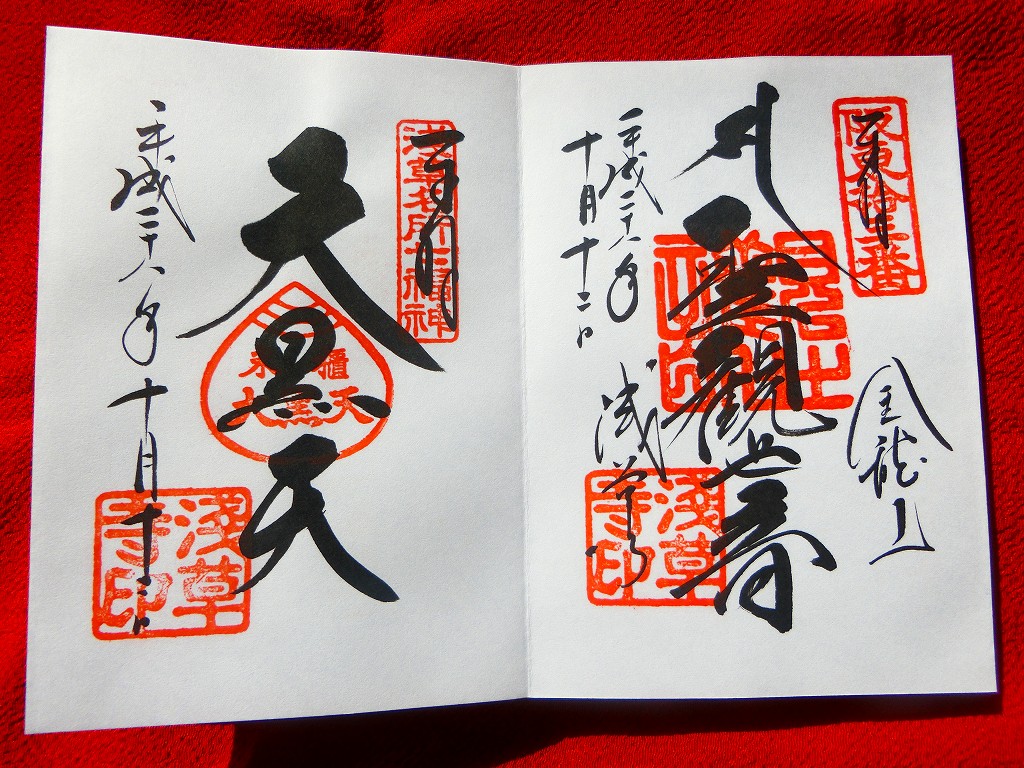 坂東拾三番
奉拝
金龍山
聖観世音
平成二十六年
十月十二日
浅草寺
淺草寺印
浅草名所七福神
奉拝
大黒天
米櫃
大黒天
平成二十六年十月十二日
淺草寺印